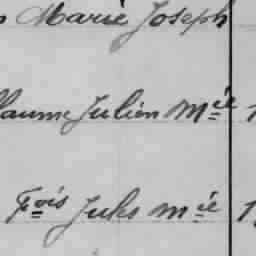 Marie Joseph
llaume Julien Mie
Fois Jules mie